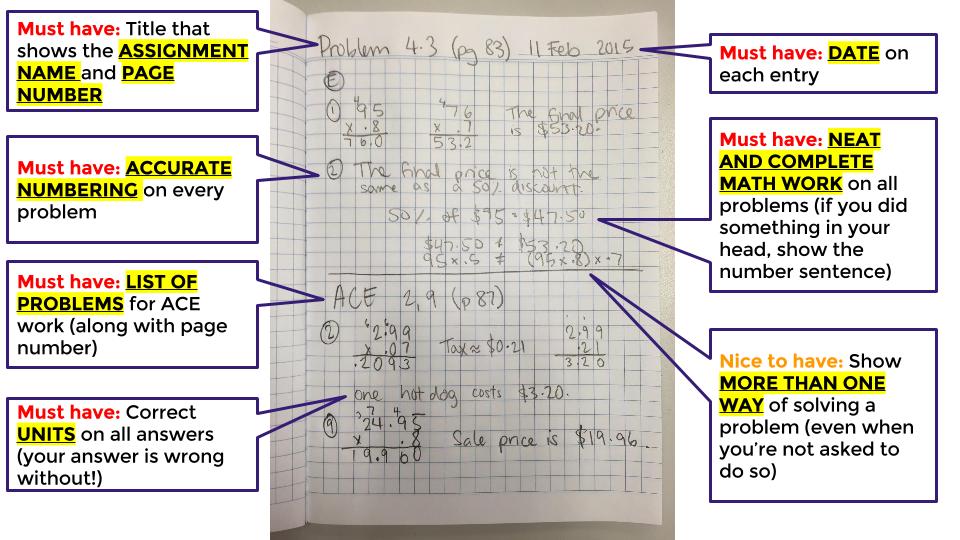 Must have: Title that
shows the ASSIGNMENT
NAME and PAGE
NUMBER
Must have: ACCURATE
NUMBERING on every
problem
Must have: LIST OF
PROBLEMS for ACE
work (along with page
number)
Must have: Correct
UNITS on all answers
(your answer is wrong
without!)
Problem 4.3 (pg 83) 11 Feb 2015
E
1 95 76 The final price
x .8 x .7 is $53.20.
76.0 53.2
2 The final price is not the
same as a 50% discount.
50% of $95 = $47.50
$47.50 ≠ $53.20
95 x .5 ≠ (95 x .8) x .7
ACE 2, 9 (p 87)
2 2.99 2.99
x .07 Tax ≈ $0.21 .21
.2093 3.20
one hot dog costs $3.20.
9 24.95
x .8 Sale price is $19.96
19.960
Must have: DATE on
each entry
Must have: NEAT
AND COMPLETE
MATH WORK on all
problems (if you did
something in your
head, show the
number sentence)
Nice to have: Show
MORE THAN ONE
WAY of solving a
problem (even when
you're not asked to
do so)